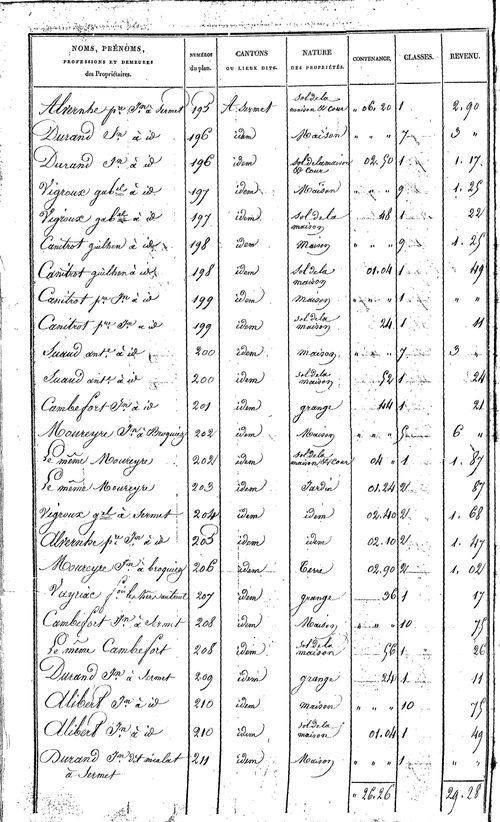 NOMS, PRÉNOMS, PROFESSIONS ET DEMEURES des Propriétaires. NUMÉROS du plan. CANTONS OU LIEUX DITS. NATURE DES PROPRIÉTÉS. CONTENANCE. CLASSES. REVENU.
Alvernhe pre Jn à Sermet 195 A Sermet sol de la maison & Cour " 06.20 1 2.90
Durand Jn à id 196 idem Maison " " " 7 3 "
Durand Jn à id 196 idem sol de la maison & Cour 02.50 1 1.17
Vigroux gabel à id 197 idem Maison " " " 9 1.25
Vigroux gabel à id 197 idem sol de la maison 48 1 22
Canitrot guilhen à id 198 idem Maison " " " 9 1.25
Canitrot guilhen à id 198 idem sol de la maison 01.04 1 49
Canitrot pre Jn à id 199 idem maison " " " 1 " "
Canitrot pre Jn à id 199 idem sol de la maison 24 1 11
Suaud ant. à id 200 idem maison " " " 7 3 "
Suaud ant. à id 200 idem sol de la maison 52 1 24
Cambefort Jn à id 201 idem grange 44 1 21
Moureyre Jn à Broquiez 202 idem Maison " " " 5 6 "
Le même Moureyre 202 idem sol de la maison & Cour 04 " 1 1.87
Le même Moureyre 203 idem Jardin 01.24 2 87
Vigroux gel à Sermet 204 idem idem 02.40 2 1.68
Alvernhe pre Jn à id 205 idem idem 02.10 2 1.47
Moureyre Jn à broquiez 206 idem Terre 02.90 2 1.02
Vayriac 207 idem grange 36 1 17
Cambefort Jn à Sermet 208 idem Maison " " " 10 75
Le même Cambefort 208 idem sol de la maison 56 1 26
Durand Jn à Sermet 209 idem grange 24 1 11
Alibert Jn à id 210 idem maison " " " 10 75
Alibert Jn à id 210 idem sol de la maison 01.04 1 49
Durand Jn dit à Sermet 211 idem Maison " " " 1 " "
" 26.26 29.28